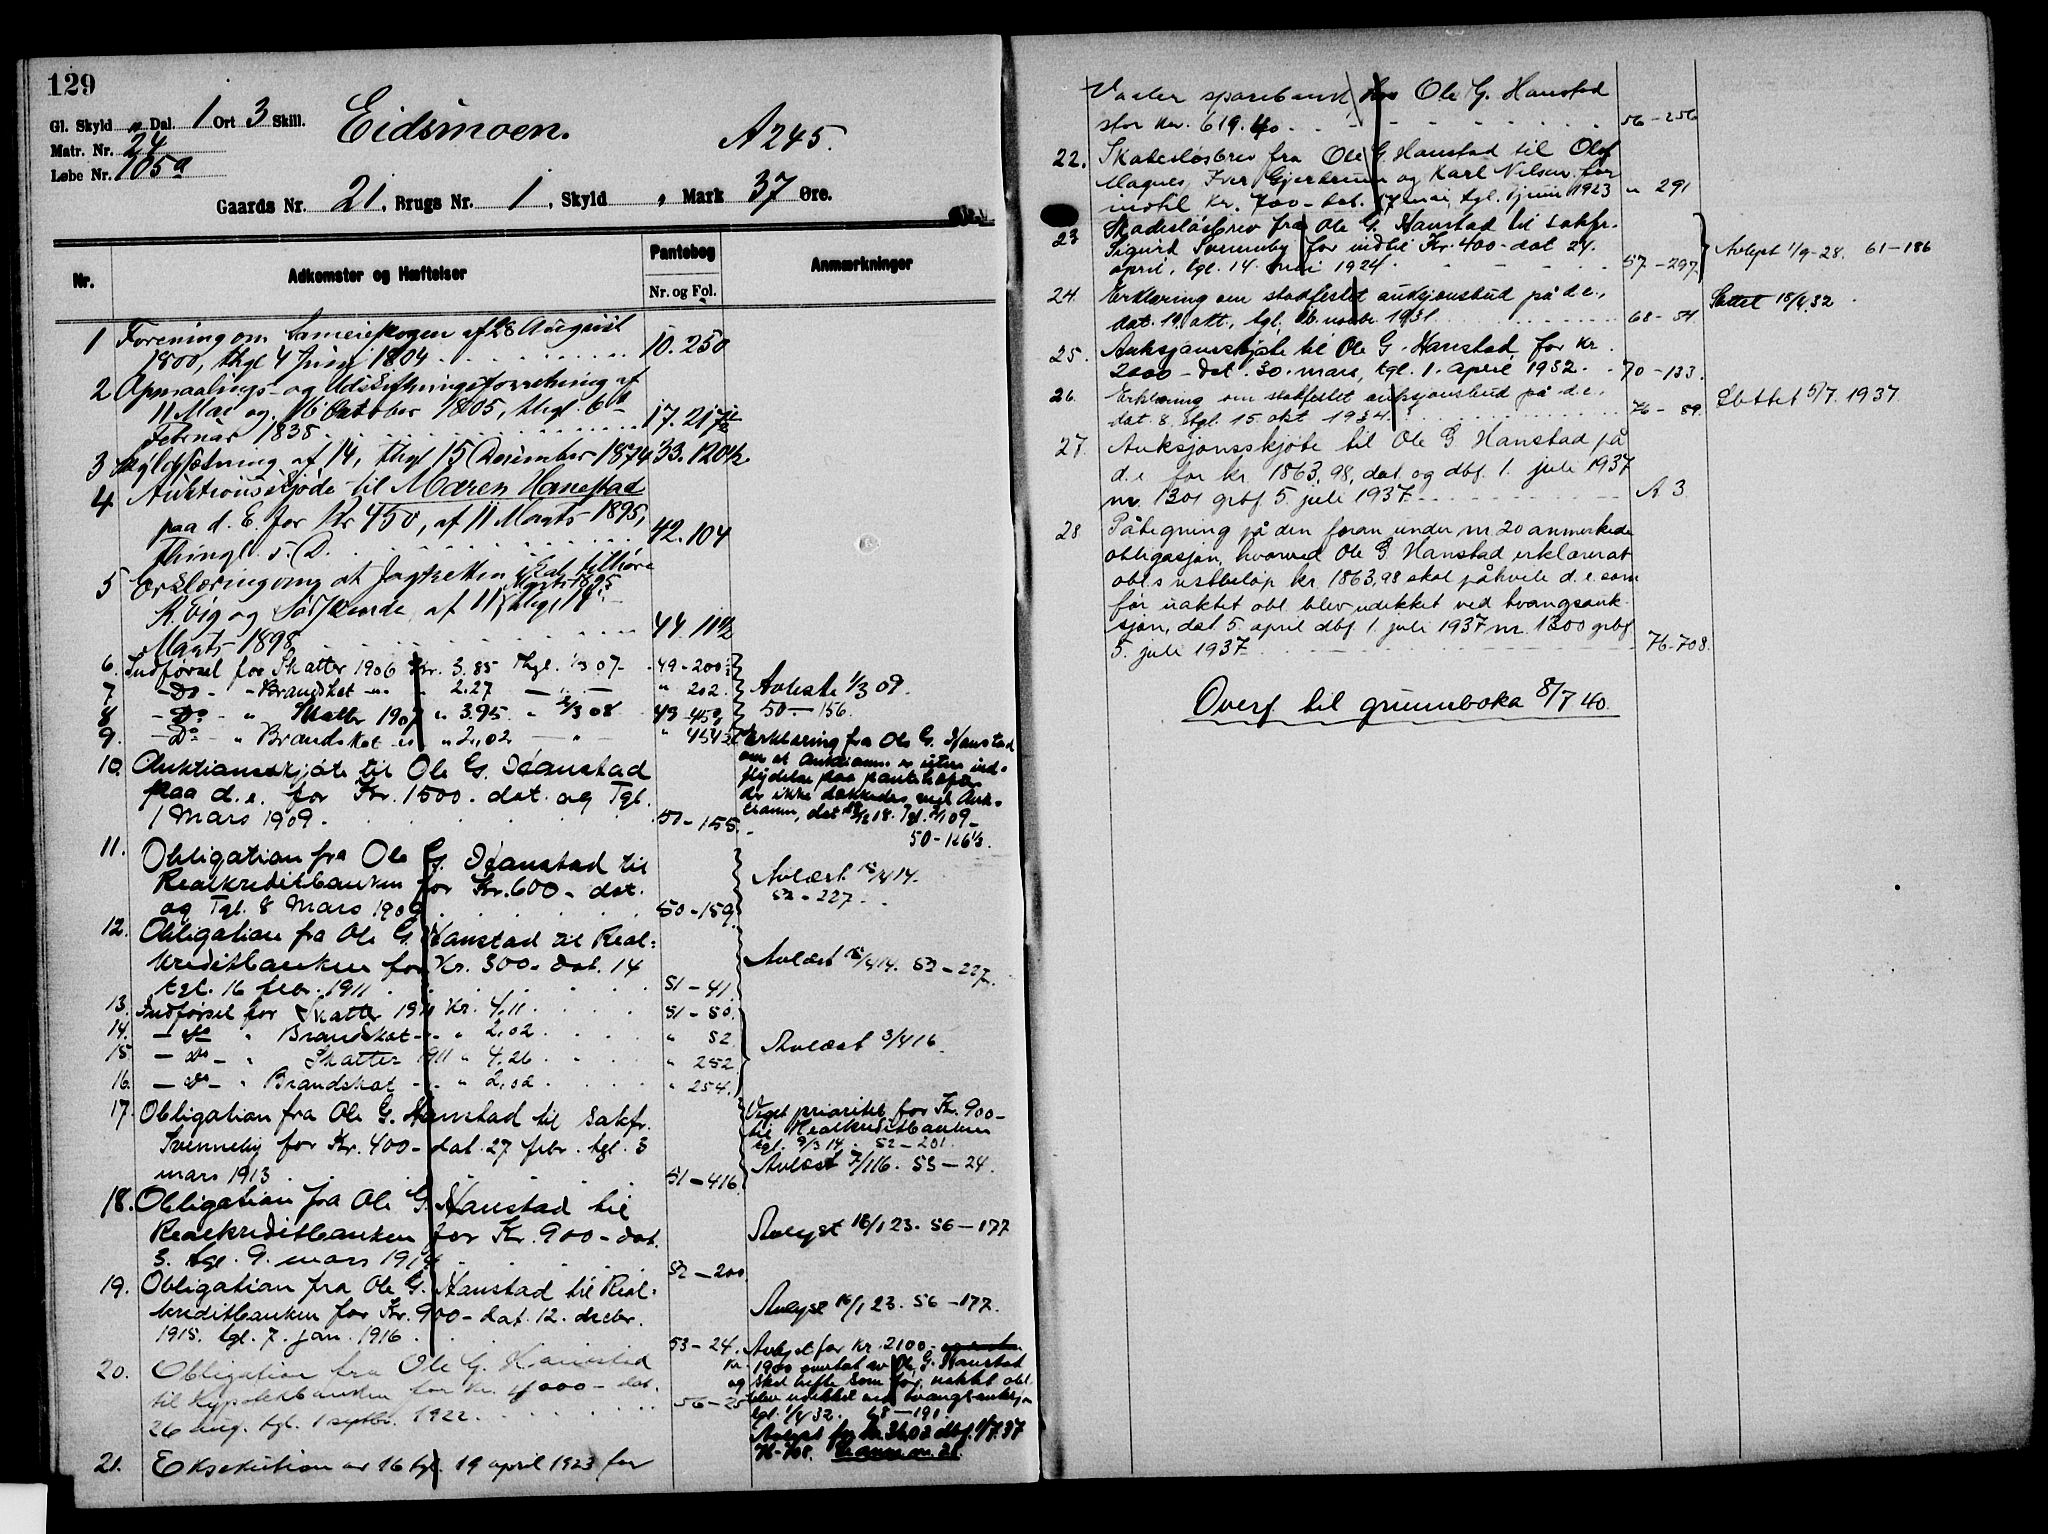 129
Gl. Skyld „ Dal. 1 Ort 3 Skill.
Eidsmoen.
A 245.
Matr. Nr. 24
Løbe Nr. 105a
Gaards Nr. 21, Brugs Nr. 1, Skyld „ Mark 37 Øre.
Nr.
Adkomster og Hæftelser
Pantebog
Nr. og Fol.
Anmærkninger
1 Forening om Sameieskogen af 28 August
1800, thgl 4 Juni 1804 10. 250
2 Opmaalings- og Udskiftningsforretning af
11 Mai og 16 Oktober 1805, thgl. 6te
Februar 1835 17. 217
3 Skyldsætning af 14, thgl 15 December 1874 33. 120½
4 Auktionsskjøde til Maren Hanestad
paa d. E. for Kr 450, af 11 Marts 1895,
thingl. s. D. 42. 104
5 Erklæring om at Jagtretten i Eal. tilhøre
K. Eig og af 11 Marts 1895 thgl 18
Marts 1898 44. 11½
6. Indførsel for Skatter 1906 Kr. 3.85 Thgl. 1/3 07 49 - 200
7 - Do - „ Brandskat „ 2.27 „ 202
8 - Do - „ Skatter 1907 „ 3.95 „ 2/3 08 49 - 453
9. - Do „ Brandskat „ „ 2,02 „ 454
Avleste 1/3 09.
50 - 156.
10. Auktionsskjøte til Ole G. Hanstad
paa d.e. for Kr. 1500. dat. og Tgl.
1 Mars 1909. 50 - 155
Erklæring fra Ole G. Hanstad
om at Auktionen er uten ind-
flydelse paa pantehefter
der ikke dækkedes ved Auk-
tionen, dat
50 - 166½.
11. Obligation fra Ole G. Hanstad til
Realkreditbanken for Kr. 600 - dat.
og Tgl. 8 Mars 1909 50 - 159
Avlæst 15/4 14.
52 - 227.
12. Obligation fra Ole G. Hanstad til Real-
kreditbanken for Kr. 300 - dat. 14
tgl. 16 febr. 1911 51 - 41
Avlæst 15/4 14. 52 - 227.
13. Indførsel for Skatter 1910 Kr. 4,11 51 - 50
14. - do - „ Brandskat - „ 2,02 „ 52
15 - do - „ Skatter 1911 „ 4,26 „ 252
16. - do - „ Brandskat - „ 2,02 „ 254
Avlæst 3/4 16.
17. Obligation fra Ole G. Hanstad til sakfr.
Svenneby for Kr. 400 - dat. 27 febr. tgl. 3
mars 1913 51 - 416
Veget prioritet for Kr. 900 -
til Realkreditbanken
tgl. 9/3 14. 52 - 201.
Avlæst 7/1 16. 53 - 24.
18. Obligation fra Ole G. Hanstad til
Realkreditbanken for Kr. 900 - dat.
3. tgl. 9. mars 1914 52 - 200
Avlyst 16/1 23. 56 - 177
19. Obligation fra Ole G. Hanstad til Real-
kreditbanken for Kr. 900 - dat. 12. decbr.
1915. tgl. 7. jan. 1916 53 - 24.
Avlyst 16/1 23. 56 - 177.
20. Obligation fra Ole G. Hanstad
til Hypotekbanken for Kr. 4000 - dat.
26 aug. tgl. 1 septbr. 1922 56 - 25
Avlyst for Kr. 2100 -
Kr. 1900 overtat av Ole G. Hanstad
og skal hefte som før, uaktet obl.
blev udekket ved tvangsauksjon
tgl. 1/4 32. 68 - 191.
Avlyst for kr. 36,02 dbf. 1/7. 37
76 - 708. Se anm. nr. 28
21. Eksekution av 16 tgl. 19 april 1923 for
Vaaler sparebank hos Ole G. Hanstad
stor kr. 619.40 56 - 256
22. Skadesløsbrev fra Ole G. Hanstad til Olof
Magnes, Iver Gjerdrum og Karl Nilsen for
indtil Kr. 700 - dat. 17 mai, tgl. 1 juni 1923 „ 291
23 Skadesløsbrev fra Ole G. Hanstad til sakfr.
Sigurd Svenneby for indtil Kr. 400 - dat 24.
april, tgl. 14. mai 1924 57 - 297
Avlyst 1/9 - 28. 61 - 186
24. Erklæring om stadfestet auksjonsbud på d.e.,
dat. 19. okt., tgl. 16. novbr 1931 68 - 54
Slettet 18/4 32.
25. Auksjonsskjøte til Ole G. Hanstad for kr.
2000 - dat. 30. mars, tgl. 1. april 1932. 70 - 133
26. Erklæring om stadfestet auksjonsbud på d.e.
dat. 8. tgl. 15. okt 1934. 76 - 89
Slettet 5/7. 1937
27. Auksjonsskjøte til Ole G. Hanstad på
d.e. for kr. 1863,98, dat og dbf. 1. juli 1937
nr. 1301 grbf 5. juli 1937 A 3
28. Påtegning på den foran under nr 20 anmerkede
obligasjon, hvorved Ole G. Hanstad erklærer at
obl.s restbeløp kr. 1863,98 skal påhvile d.e. som
før uaktet obl. blev udekket ved tvangsauk-
sjon, dat 5. april dbf 1. juli 1937 nr. 1300 grbf
5. juli 1937 76 - 708.
Overf. til grunnboka 8/7 40.